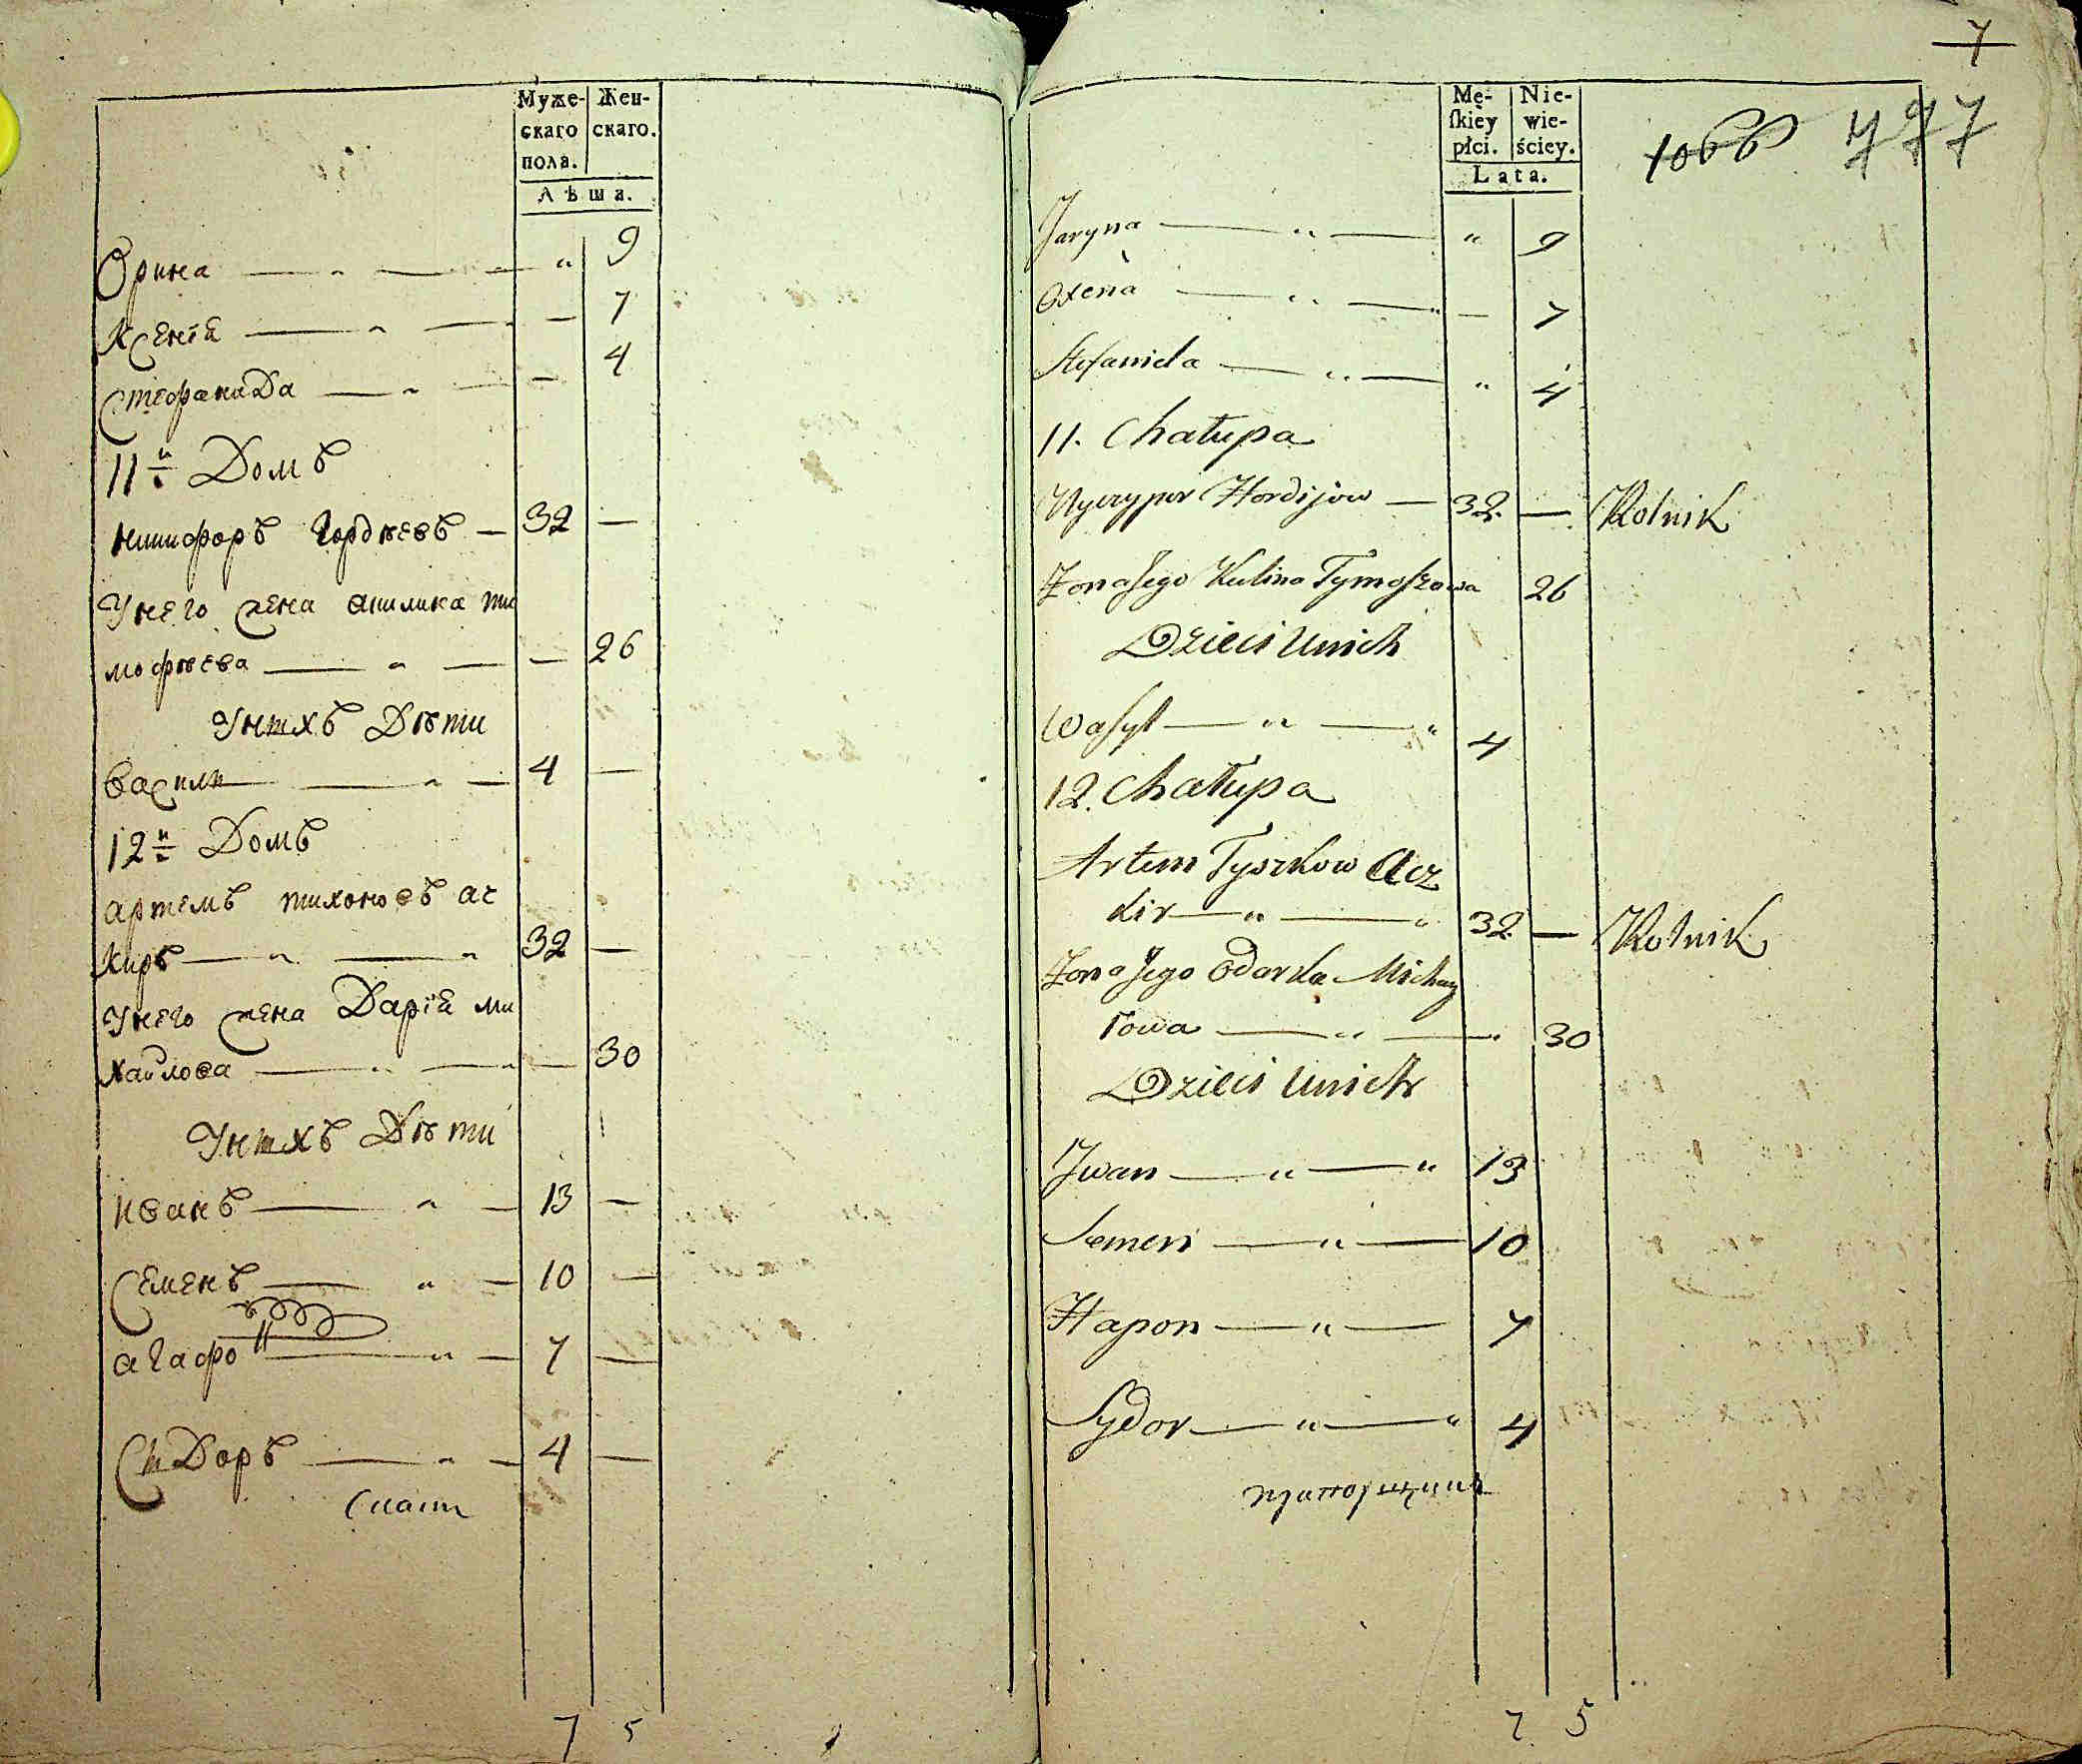 Муже-
скаго
пола.
Жен-
скаго.
Лѣта.
Орина — „ — „ 9
Ксенія — „ — — 7
Стефанида — „ — — 4
11й Домъ
Никифоръ Гордѣевъ — 32 —
У него жена Акилина Ти
мофѣева — „ — — 26
У нихъ Дѣти
Василий — „ — 4 —
12й Домъ
Артемъ Тихоновъ Ac
киръ — „ — „ 32 —
У него жена Дарія Ми
хайлова — „ — „ — 30
У нихъ Дѣти
Иванъ — „ — 13 —
Семенъ — „ — 10 —
Агафон — „ — 7 —
Сидоръ — „ — 4 —
7 5
7
1066 797
Mę-
skiey
płci.
Nie-
wie-
ściey.
Lata.
Jaryna — „ — „ 9
Oxena — „ — „ — 7
Stefanida — „ — „ 4
11. Chałupa
Nyczypor Hordijow — 32. — Rolnik
Żona Jego Kulina Tymoszowa 26
Dzieci U nich
Wasyl — „ — „ 4
12. Chałupa
Artem Tyszkow Acz
kir — „ — „ 32. — Rolnik
Żona Jego Odarka Michay
łowa — „ — „ 30
Dzieci U nich
Jwan — „ — „ 13
Semen — „ — 10
Hapon — „ — 7
Sydor — „ — „ 4
прапорщикъ
7 5